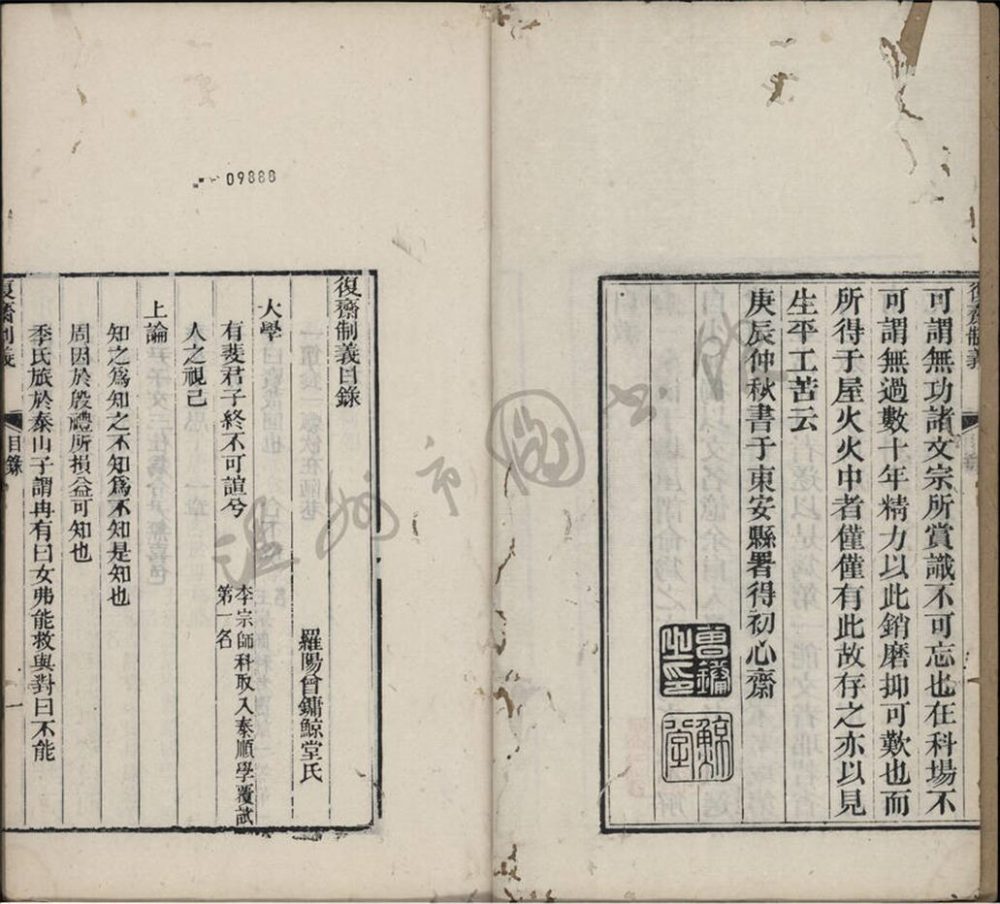 復齋制義
可謂無功諸文宗所賞識不可忘也在科場不
可謂無過數十年精力以此銷磨抑可歎也而
所得于屋火火中者僅僅有此故存之亦以見
生平工苦云
庚辰仲秋書于東安縣署得初心齋
曾鏞之印
鯨堂
09888
復齋制義目錄
羅陽曾鏞鯨堂氏
大學
有斐君子終不可諠兮 李宗師科取入泰順學覆試
第一名
人之視己
上論
知之爲知之不知爲不知是知也
周因於殷禮所損益可知也
季氏旅於泰山子謂冉有曰女弗能救與對曰不能
復齋制義 目錄 一
溫州市圖書館